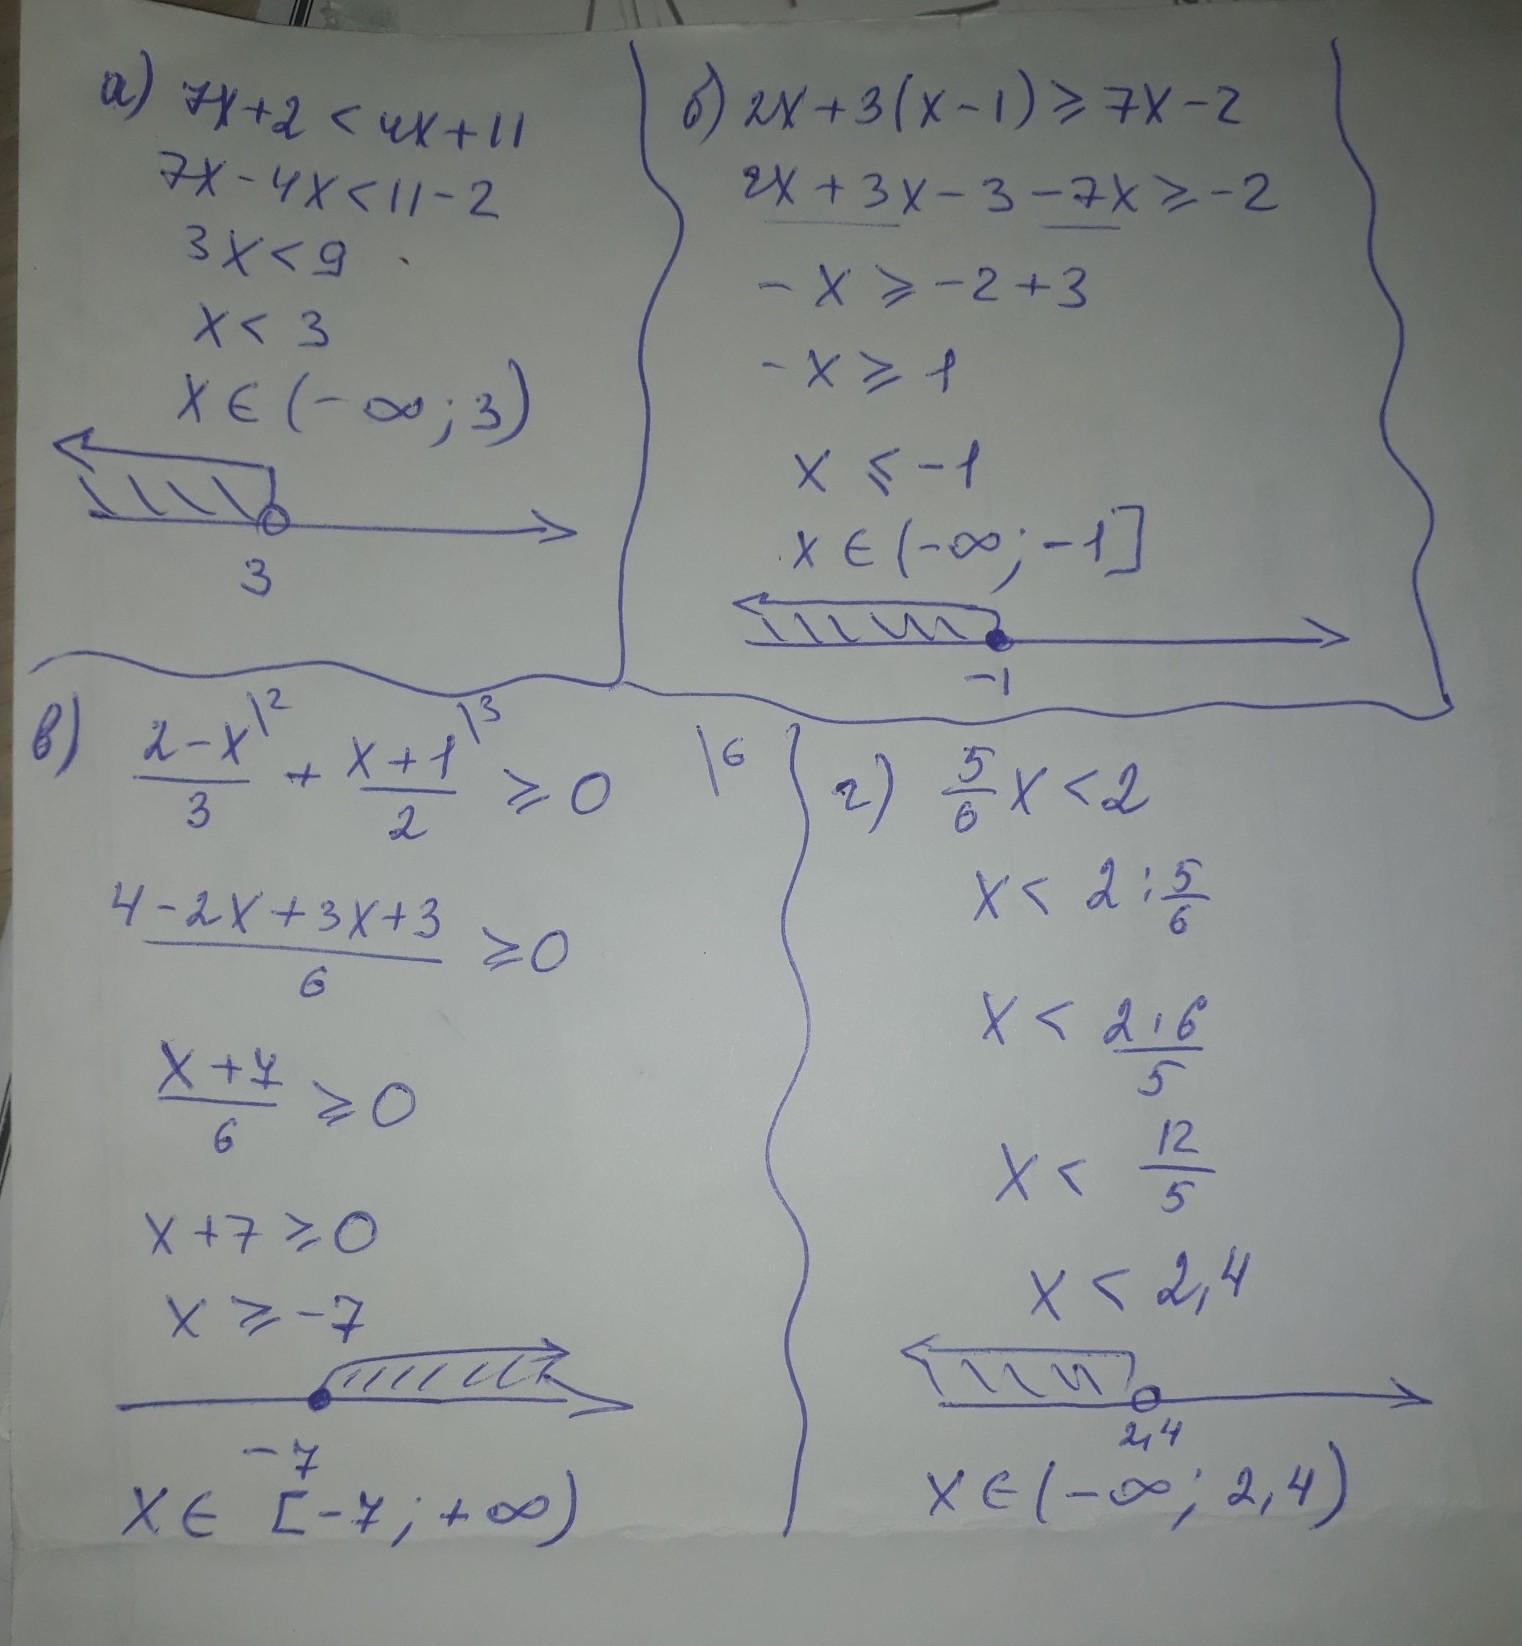 а) 7x+2 < 4x+11
7x-4x<11-2
3x<9
x< 3
x∈(-∞;3)
3
б) 2x+3(x-1)⩾7x-2
2x+3x-3-7x⩾-2
-x⩾-2+3
-x⩾1
x⩽-1
x∈(-∞;-1]
-1
в) \frac{2-x}{3}\2 + \frac{x+1}{2}\3 ⩾0 \6
\frac{4-2x+3x+3}{6} ⩾0
\frac{x+7}{6} ⩾0
x+7⩾0
x⩾-7
-7
x∈ [-7;+∞)
г) \frac{5}{6}x<2
x< 2:\frac{5}{6}
x< \frac{2·6}{5}
x< \frac{12}{5}
x< 2,4
2,4
x∈(-∞; 2,4)